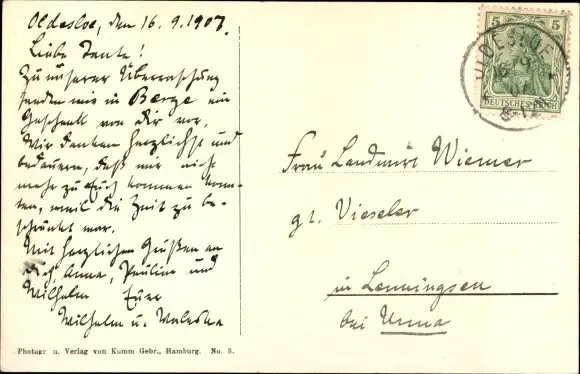 Oldesloe, den 16.9.1907.
Liebe Tante!
Zu unserer Überraschung
fanden wir in Berge ein
Geschenk von dir vor.
Wir danken herzlichst und
bedauern, daß wir nicht
mehr zu Euch kommen konn-
ten, weil die Zeit zu be-
schränkt war.
Mit herzlichen Grüßen an
Dich, Anna, Pauline und
Wilhelm Euer
Wilhelm u. Waleska
Photogr u. Verlag von Kumm Gebr., Hamburg. No. 3.
5 5
DEUTSCHES REICH
OLDESLOE
Frau Landwirt Wiemer
gt. Vieseler
in Lenningsen
bei Unna